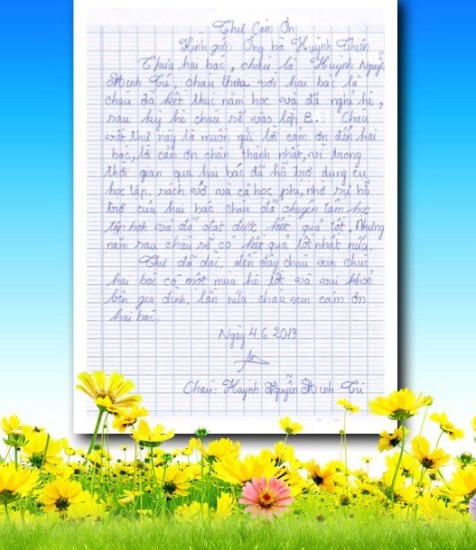 Thư Cảm Ơn
Kính gửi: Ông bà Huỳnh Thiên
Thưa hai bác, cháu là Huỳnh Nguyễn
Minh Tú, cháu thưa với hai bác là
cháu đã kết thúc năm học và đã nghỉ hè,
sau kỳ hè cháu sẽ vào lớp 8. Cháu
viết thư này là muốn gửi lời cảm ơn đến hai
bác, lời cảm ơn chân thành nhất, vì trong
thời gian qua hai bác đã hỗ trợ dụng cụ
học tập, sách vở và cả học phí, nhờ sự hỗ
trợ của hai bác cháu đã chuyên tâm học
tập hơn và đã đạt được kết quả tốt. Nhưng
năm sau cháu sẽ có kết quả tốt nhất nữa.
Thư đã dài, đến đây cháu xin chúc
hai bác có một mùa hè tốt và vui khoẻ
bên gia đình. lần nữa cháu xin cảm ơn
hai bác.
Ngày 4.6.2013
Cháu: Huỳnh Nguyễn Minh Tú